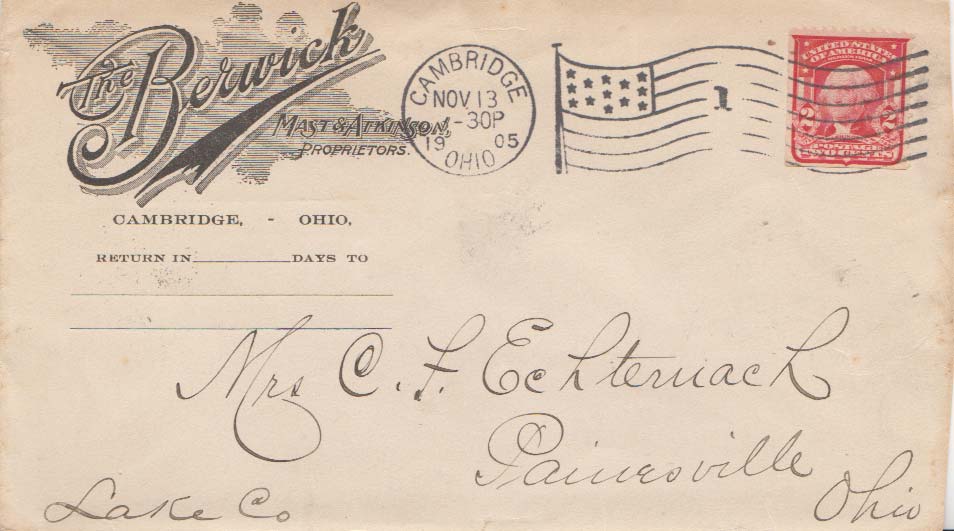 The Berwick
MAST & ATKINSON,
PROPRIETORS.
CAMBRIDGE, - OHIO,
RETURN IN DAYS TO
CAMBRIDGE
NOV 13
-30P
1905
OHIO
1
UNITED STATES
OF AMERICA
2 2
POSTAGE
TWO CENTS
Mrs C. F. Echternach
Painesville
Lake Co Ohio